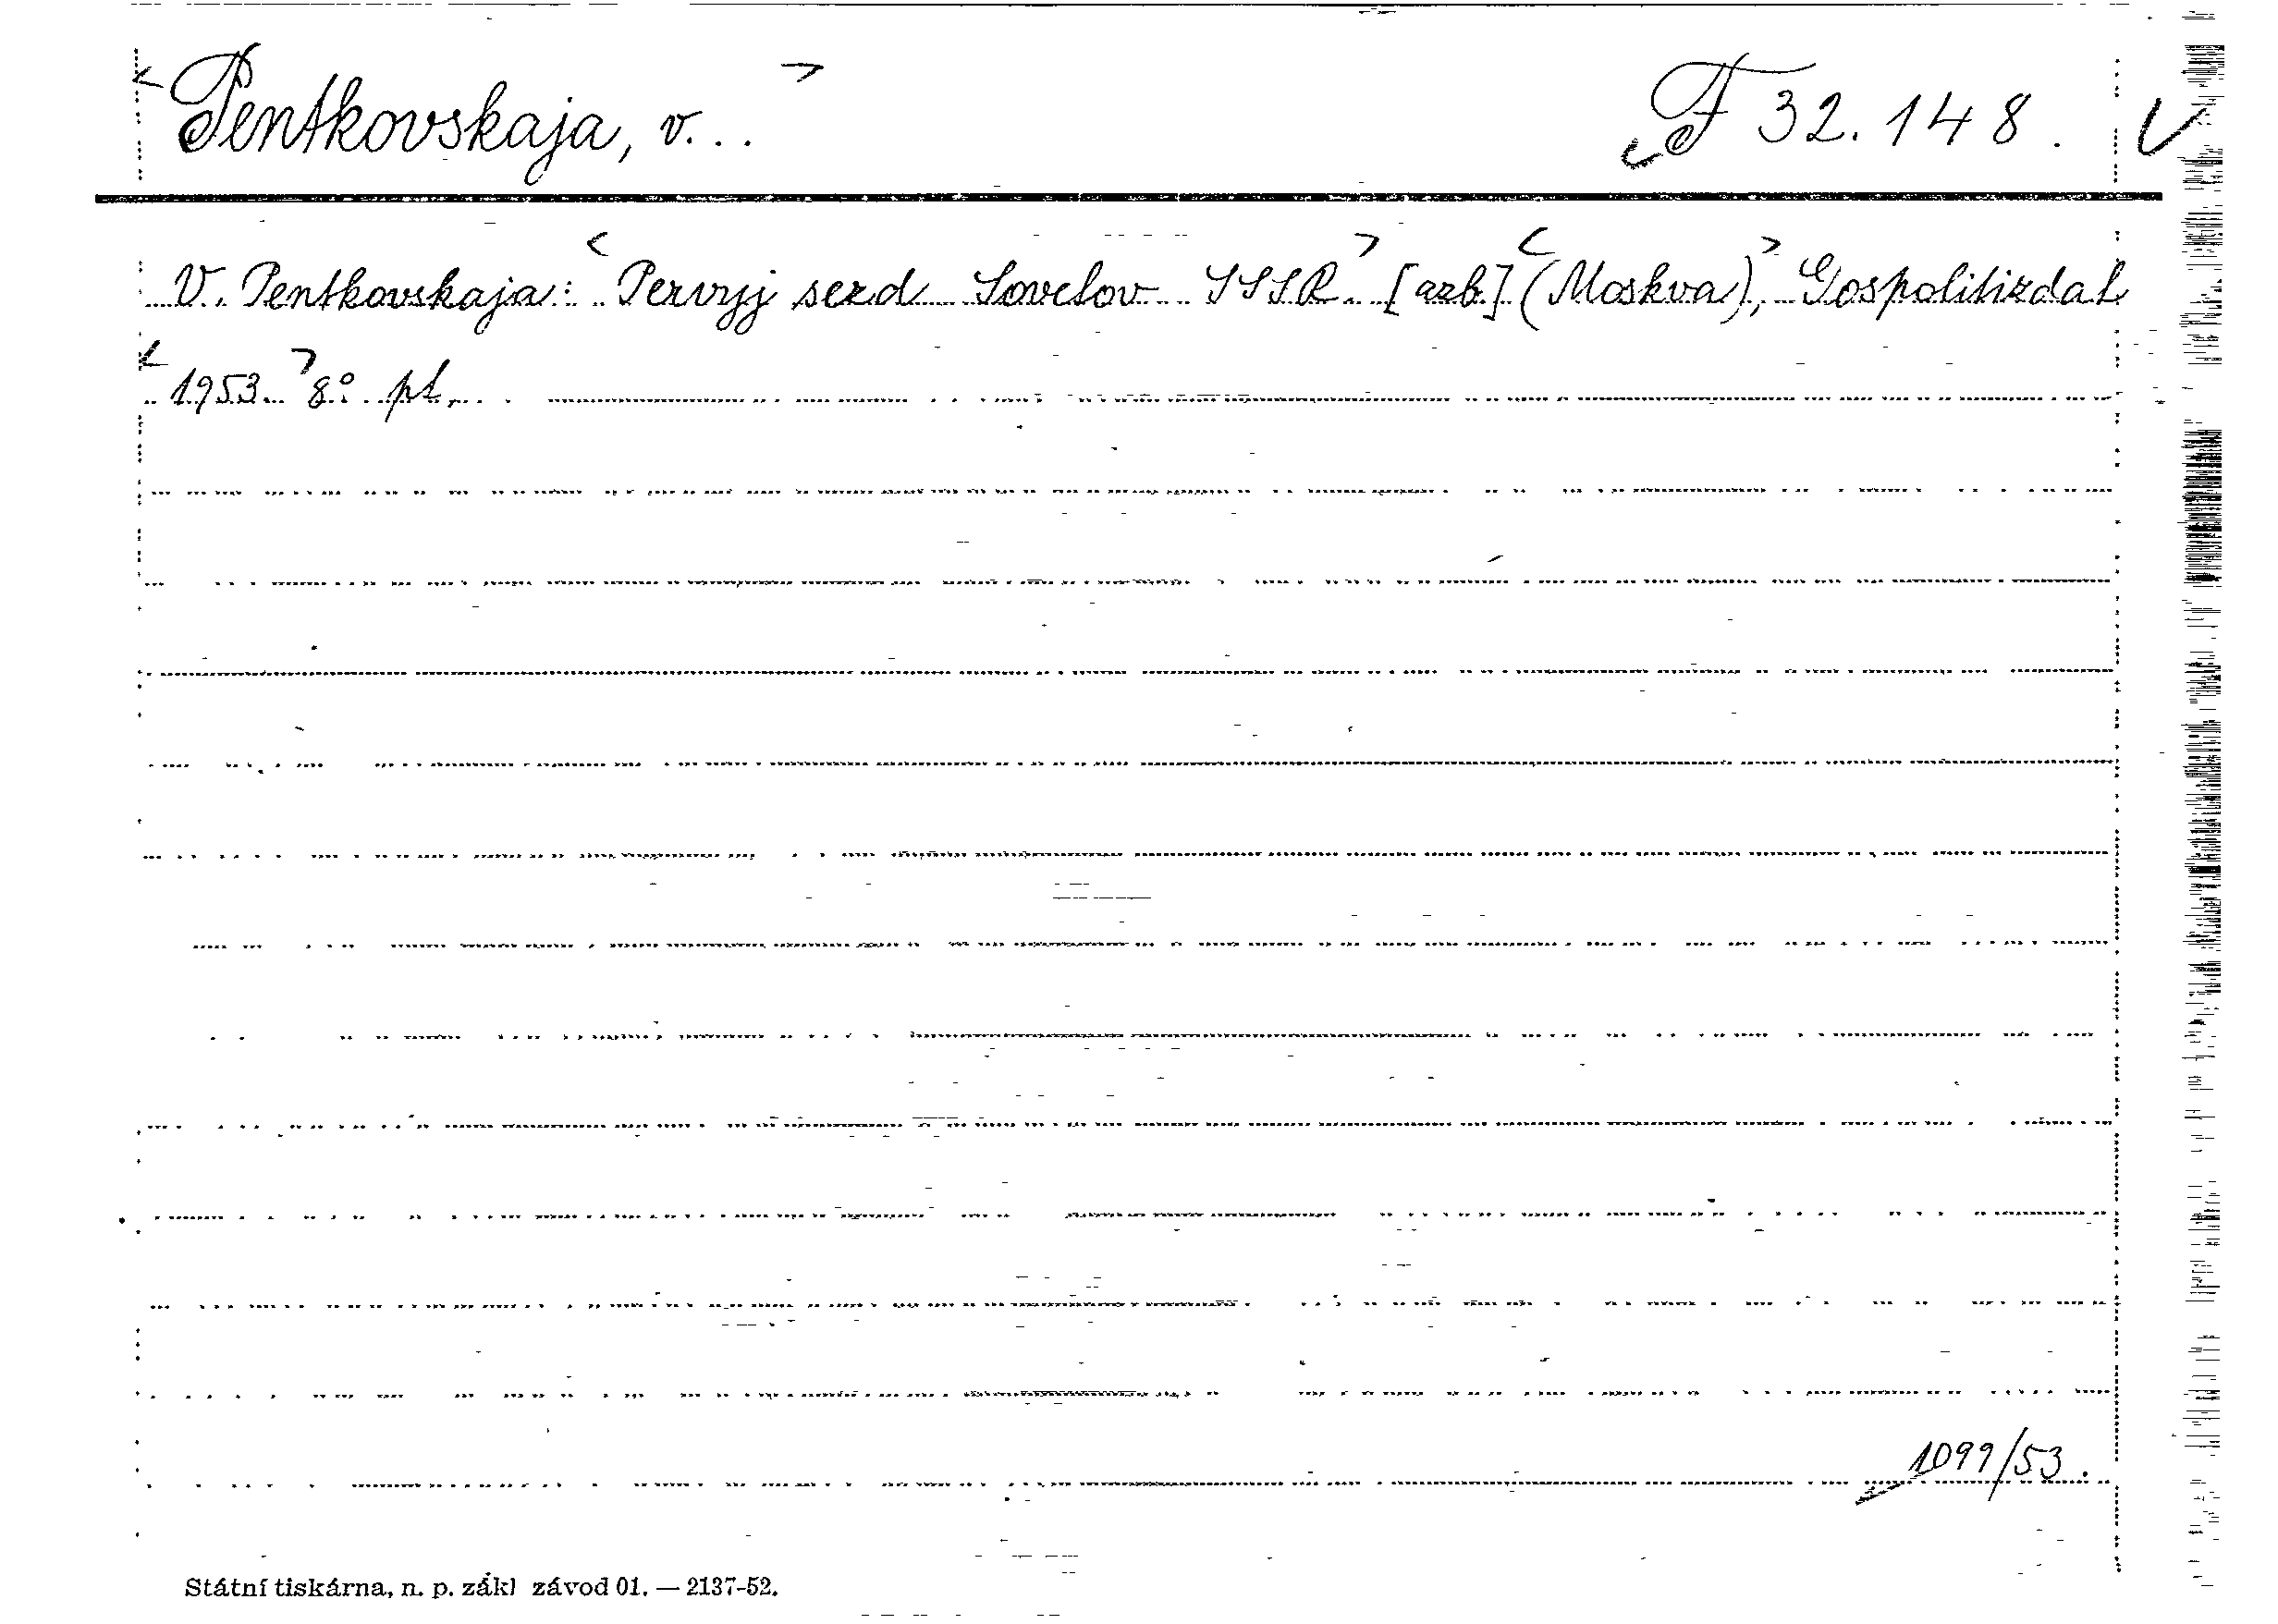 Pentkovskaja, V... F 32.148.
V. Pentkovskaja: Pervyj sezd Sovetov SSSR. [azb.] (Moskva), Gospolitizdat
1953. 8°. pt.
1099/53.
Státní tiskárna, n. p. zákl závod 01. — 2137-52.